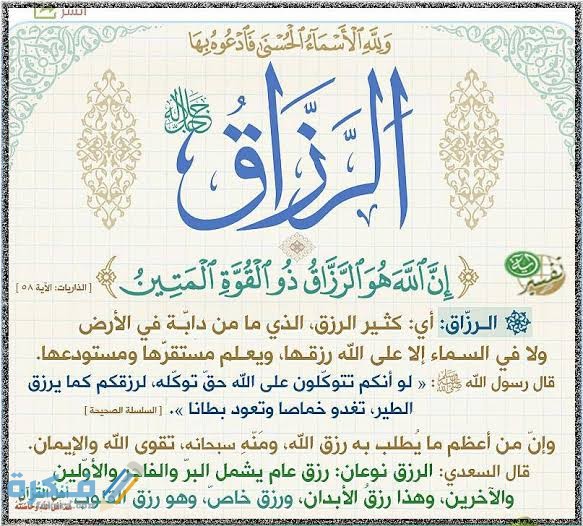 انشر
وَلِلَّهِ ٱلْأَسْمَاءُ ٱلْحُسْنَىٰ فَٱدْعُوهُ بِهَا
الرَّزَّاقُ
جل جلاله
﴿إِنَّ ٱللَّهَ هُوَ ٱلرَّزَّاقُ ذُو ٱلْقُوَّةِ ٱلْمَتِينُ﴾ [ الذاريات: الآية ٥٨ ]
الـرزّاق: أي: كثـير الرزق، الذي ما من دابّـة في الأرض
ولا في السماء إلا على الله رزقـها، ويعـلم مستقرّها ومستودعها.
قال رسول الله ﷺ: « لو أنكم تتوكّلون على الله حقّ توكّله، لرزقكم كما يرزق
الطير، تغدو خماصا وتعود بطانا ». [ السلسلة الصحيحة ]
وإنّ من أعظم ما يُطلب به رزق الله، ومَنّهِ سبحانه، تقوى الله والإيمان.
قال السعدي: الرزق نوعان: رزق عام يشمل البرّ والفاجر والأوّلين
والآخرين، وهذا رزقُ الأبدان، ورزق خاصّ، وهو رزق القلوب
فكرة
أهل القرآن